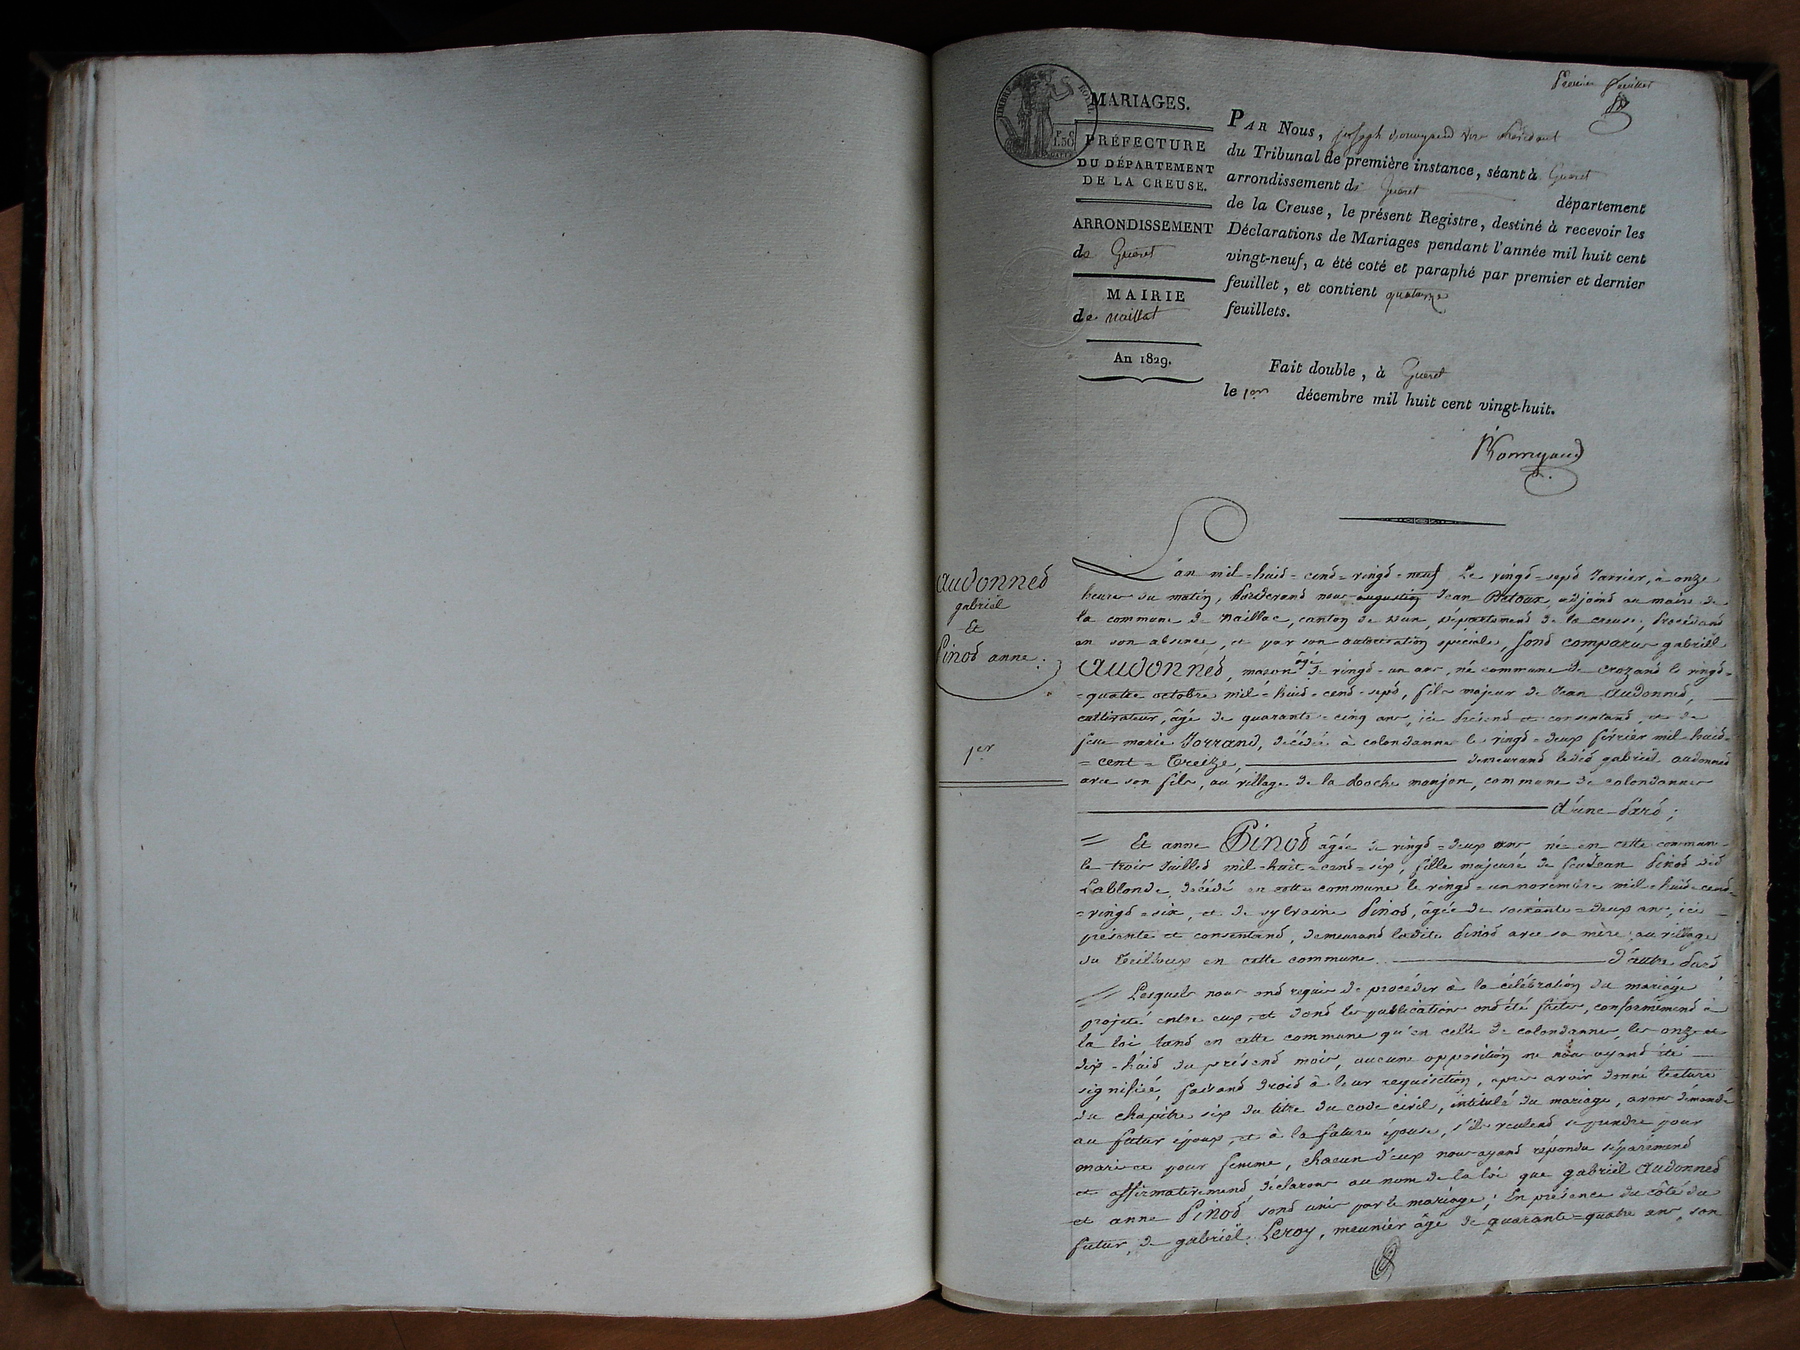 Premier feuillet
TIMBRE ROYAL
F. C.
1.50
MARIAGES.
PRÉFECTURE
DU DÉPARTEMENT
DE LA CREUSE.
ARRONDISSEMENT
de Gueret
MAIRIE
de naillat
An 1829.
PAR Nous, joseph vice president
du Tribunal de première instance, séant à Gueret
arrondissement de Gueret département
de la Creuse, le présent Registre, destiné à recevoir les
Déclarations de Mariages pendant l'année mil huit cent
vingt-neuf, a été coté et paraphé par premier et dernier
feuillet, et contient quatorze
feuillets.
Fait double, à Gueret
le 1er décembre mil huit cent vingt-huit.
audonned
gabriël
Et
Pinod anne:
1er
L'an mil-huid-cend-vingd-neuf Le vingd-sepd Janvier, à onze
heures du matin, pardevand nous augustin Jean Betoux, adjoind au maire de
la commune de naillac, canton de Dun, département de la creuse, procédand
en son absence, et par son autorisation spéciale, sond comparus gabriël
Audonned, maçon âgé de vingd-un ans, né commune de crozand le vingd-
-quatre octobre mil-huid-cend-sepd, fils majeur de Jean audonned,
cultivateur, âgé de quarante-cinq ans, ici présend et consentand, et de
feue marie Jorrand, décédée à colondanne le vingd-deux février mil-huid-
-cent-treize, demeurand ledid gabriël audonned
avec son fils, au village de la Roche monjon, commune de colondannes
d'une pard;
= Et anne Pinod âgée de vingd-deux ans née en cette commune
le trois Juilled mil-huit-cend-six, fille majeure de feu Jean Pinod did
Lablonde, décédé en cette commune le vingd-un novembre mil-huid-cend-
-vingd-six, et de sylvaine Pinod, âgée de soixante-deux ans, ici
présente et consentand, demeurand ladite Pinod avec sa mère, au village
du teilloux en cette commune d'autre pard,
= Lesquels nous ond requis de procéder à la célébration du mariage
projeté entre eux, et dond les publications ond été faites, conformémend à
la loi tand en cette commune qu'en celle de colondannes, les onze et
dix-huid du présend mois, aucune opposition ne nous ayand été
signifiée, faisand droid à leur requisition, après avoir donné lecture
du chapitre six du titre du code civil, intitulé du mariage, avons demandé
au futur époux, et à la future épouse, s'ils veulend se prendre pour
mari et pour femme, chacun d'eux nous ayand répondu séparémend
et affirmativemend déclarons au nom de la loi que gabriël Audonned
et anne Pinod sond unis par le mariage; En présence du côté du
futur, de gabriël Leroy, meunier âgé de quarante-quatre ans, son